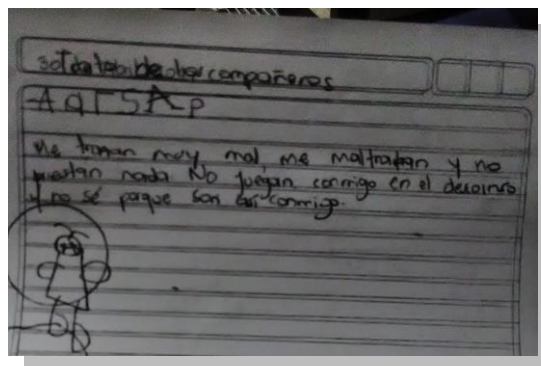 compañeros
Me tratan muy mal me maltratan y no
prestan nada No juegan conmigo en el descanso
y no sé porque son así conmigo.